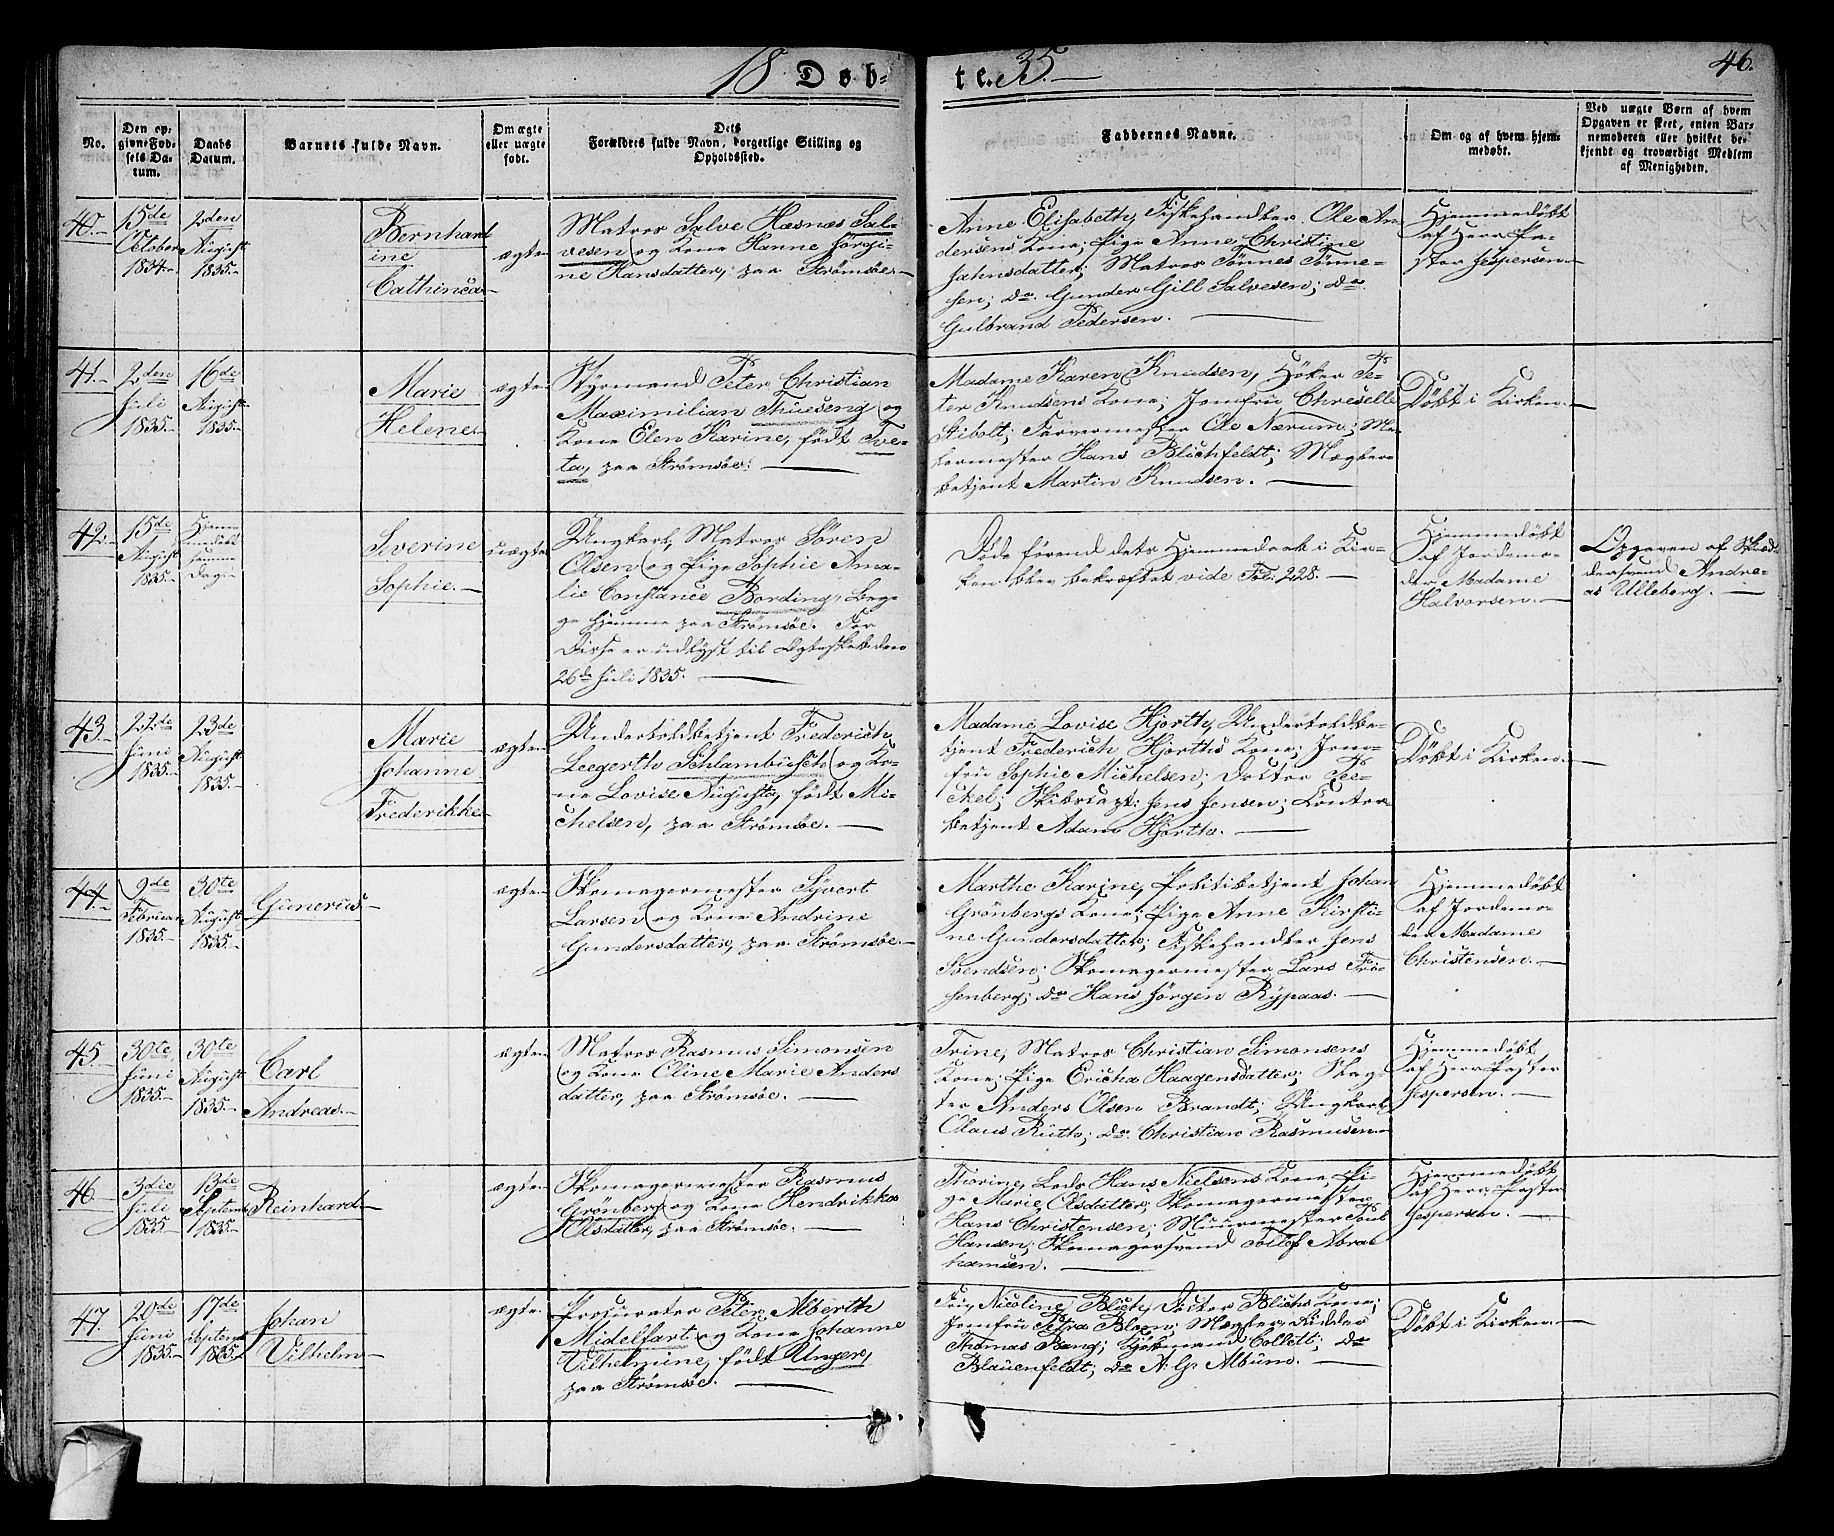 18 Døb-
te. 35.
46.
No.
Den op-
givne Fød-
sels Da-
tum.
Daabs
Datum.
Barnets fulde Navn.
Om ægte
eller uægte
født.
Dets
Forældres fulde Navn, borgerlige Stilling og
Opholdssted.
Faddernes Navne.
Om og af hvem hjem-
medøbt.
Ved uægte Børn af hvem
Opgaven er skeet, enten Bar-
nemoderen eller hvilket be-
kjendt og troværdigt Medlem
af Menigheden.
40.
15de
October
1834.
2den
August
1835.
Bernhard
ine
Cathinca
ægte
Matros Salve Hasnes Sal-
vesen og Kone Hanne Jørgi-
ne Hansdatter, paa Strømsøe.
Anne Elisabeth, Fiskehandler Ole An-
dersens Kone; Pige Anne Christine
Jahnsdatter; Matros Tønnes Tønne-
sen; do. Gunder Gill Salvesen; do.
Gulbrand Pedersen.
Hjemmedøbt
af Herr Pa-
stor Jespersen.
41.
2den
Juli
1835.
16de
August
1835.
Marie
Helene
ægte
Styrmand Peter Christian
Maximilian Thueseng og
Kone Elen Karine, født Tve-
ta, paa Strømsøe.
Madame Karen Knudsen, Høker Pe-
ter Knudsens Kone; Jomfru Chriselle
Stibolt; Farvermester Ole Nærum; Ma-
lermester Hans Blichfeldt; Mægler-
betjent Martin Knudsen.
Døbt i Kirken.
42.
15de
August
1835.
Hjem-
medøbt
samme
Dag.
Severine
Sophie.
uægte
Ungkarl, Matros Søren
Olsen og Pige Sophie Ama-
lie Constance Bording, beg-
ge hjemme paa Strømsøe. For
Disse er udlyst til Ægteskab den
26de Juli 1835.
Døde førend dets Hjemmedaab i Kir-
ken blev bekræftet vide Fol: 228.
Hjemmedøbt
af Jordemo-
der Madame
Halvorsen.
Opgaven af Skræd-
dersvend Andre-
as Ulleberg.
43.
22de
Juni
1835.
23de
August
1835.
Marie
Johanne
Frederikke
ægte
Undertoldbetjent Frederich
Leegerth Schlambusch og Ko-
ne Lovise Augusta, født Mi-
chelsen, paa Strømsøe.
Madame Lovise Hjorth, Undertoldbe-
tjent Frederich Hjorths Kone; Jom-
fru Sophie Michelsen; Doctor Pe-
ckel; Skibscapt: Jens Jensen; Contor
betjent Adam Hjorth.
Døbt i Kirken.
44.
9de
Februar
1835.
30te
August
1835.
Gunerius
ægte
Skomagermester Syvert
Larsen og Kone Andrine
Gundersdatter, paa Strømsøe.
Marthe Karine, Politibetjent Johan
Grønbergs Kone; Pige Anne Kirsti-
ne Gundersdatter; Fiskehandler Jens
Svendsen; Skomagermester Lars Frø-
senberg; do Hans Jørgen Rypaas.
Hjemmedøbt
af Jordemo-
der Madame
Christensen.
45.
30te
Juni
1835.
30te
August
1835.
Carl
Andreas.
ægte
Matros Rasmus Simonsen
og Kone Oline Marie Anders
datter, paa Strømsøe.
Trine, Matros Christian Simonsens
Kone; Pige Ericha Haagensdatter; Slag-
ter Anders Olsen Brandt; Ungkarl
Olaus Ruth; do. Christian Rasmusen.
Hjemmedøbt
af Herr Pastor
Jespersen.
46.
3die
Juli
1835
13de
Septemb
1835.
Reinhard
ægte
Skomagermester Rasmus
Grønberg og Kone Hendrikke
Olsdatter, paa Strømsøe.
Thorine, Lods Hans Nielsens Kone, Pi-
ge Marie Olsdatter, Skomagermester
Hans Christensen; Muurmester Poul
Hansen; Skomagersvend Tollef Abra-
hamsen.
Hjemmedøbt
af Herr Pastor
Jespersen.
47.
20de
Juni
1835.
17de
Septemb
1835.
Johan
Vilhelm
ægte
Procurator Peter Alberth
Midelfart og Kone Johanne
Vilhelmine, født Unger,
paa Strømsøe.
Fru Nicoline Blich, Doctor Blichs Kone;
Jomfru Petra Bloom; Mægler, Ridder
Thomas Bang; Kjøbmand Collett; do
Blauenfeldt; do A. G. Album.
Døbt i Kirken.